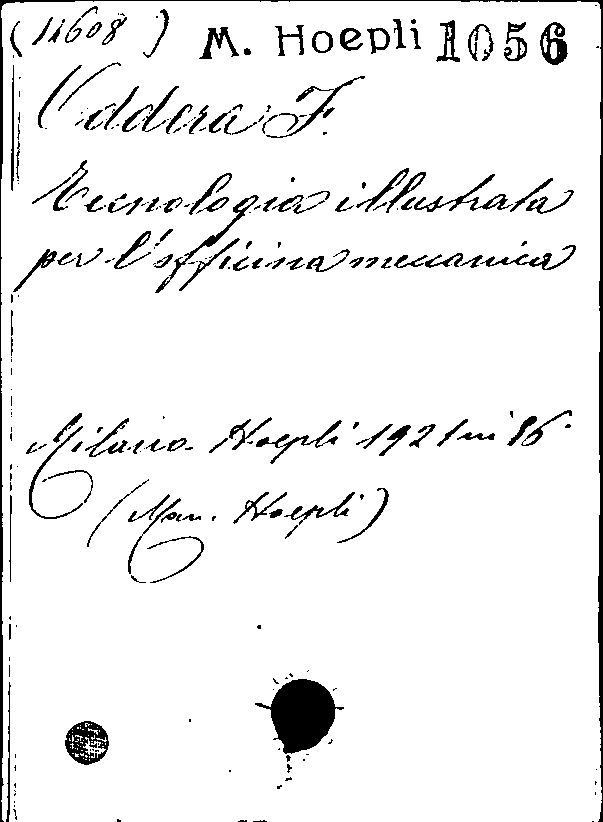 (14608) M. Hoepli 1056
Oddera F.
Tecnologia illustrata
per l'officina meccanica
Milano - Hoepli 1921 in 16°
(Man. Hoepli)